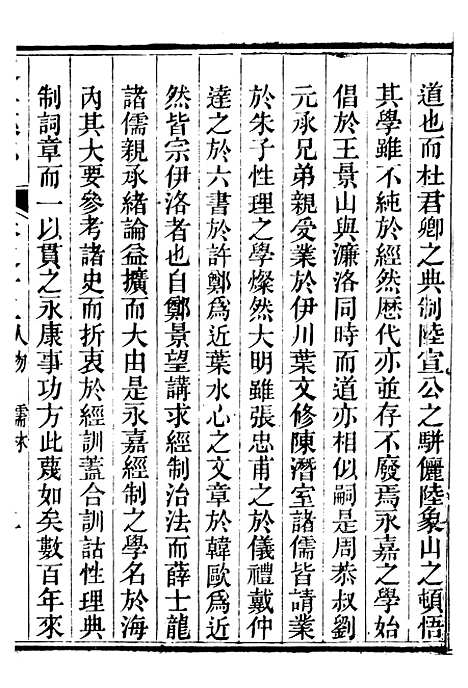 道也而杜君卿之典制陸宣公之駢儷陸象山之頓悟
其學雖不純於經然歷代亦並存不廢焉永嘉之學始
倡於王景山與濂洛同時而道亦相似嗣是周恭叔劉
元承兄弟親受業於伊川葉文修陳潛室諸儒皆請業
於朱子性理之學燦然大明雖張忠甫之於儀禮戴仲
達之於六書於許鄭爲近葉水心之文章於韓歐爲近
然皆宗伊洛者也自鄭景望講求經制治法而薛士龍
諸儒親承緒論益擴而大由是永嘉經制之學名於海
內其大要參考諸史而折衷於經訓蓋合訓詁性理典
制詞章而一以貫之永康事功方此蔑如矣數百年來
人物 儒林